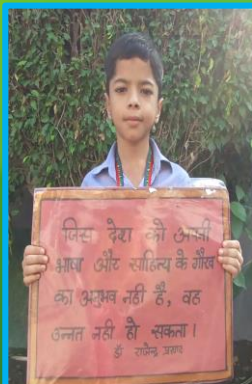 जिस देश को अपनी
भाषा और साहित्य के गौरव
का अनुभव नहीं है, वह
उन्नत नहीं हो सकता।
डॉ राजेन्द्र प्रसाद